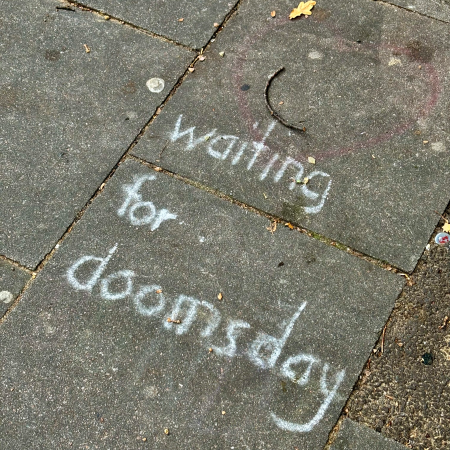 waiting
for
doomsday